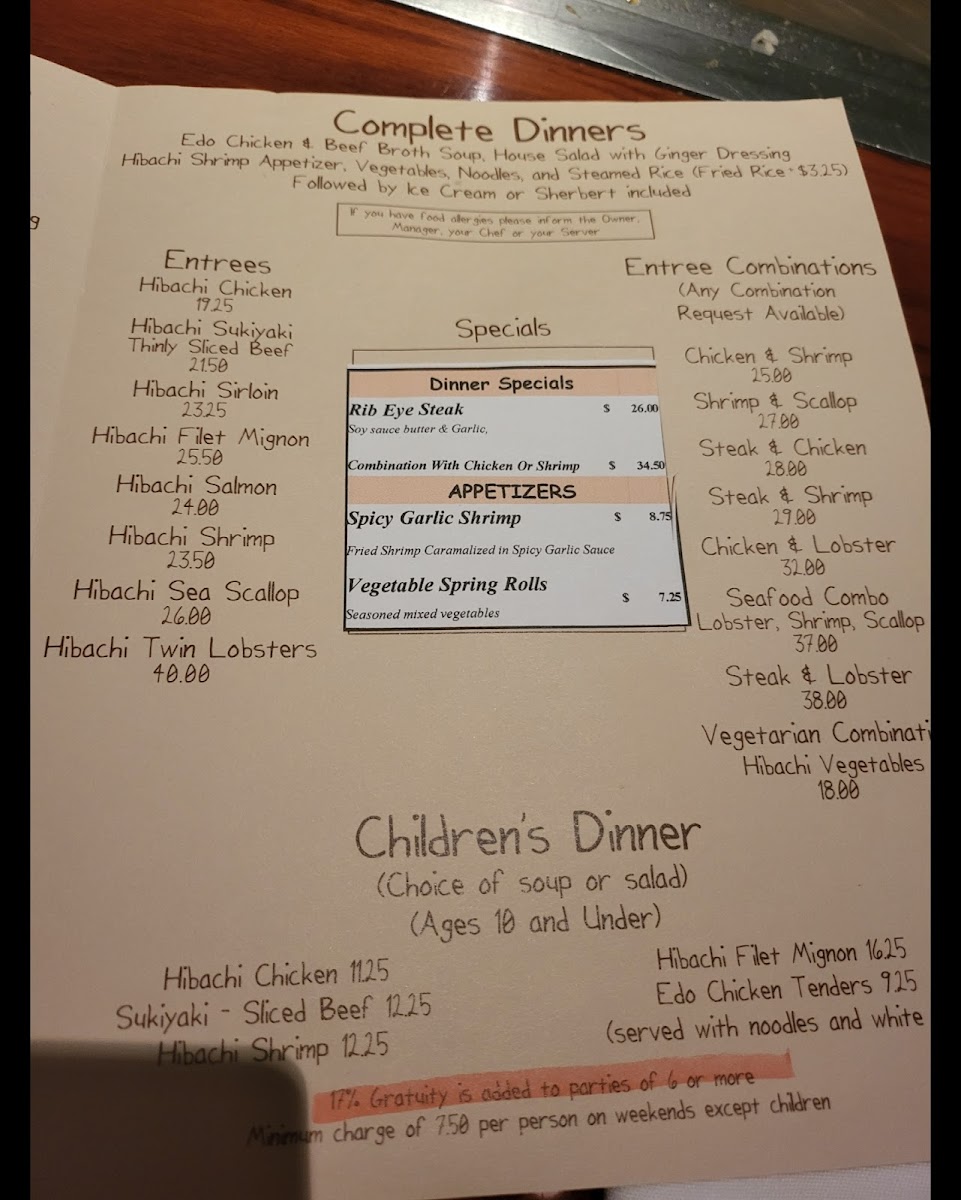 Complete Dinners
Edo Chicken & Beef Broth Soup, House Salad with Ginger Dressing
Hibachi Shrimp Appetizer, Vegetables, Noodles, and Steamed Rice (Fried Rice - $3.25)
Followed by Ice Cream or Sherbert included
If you have food allergies please inform the Owner,
Manager, your Chef or your Server
Entrees
Hibachi Chicken
19.25
Hibachi Sukiyaki
Thinly Sliced Beef
21.50
Hibachi Sirloin
23.25
Hibachi Filet Mignon
25.50
Hibachi Salmon
24.00
Hibachi Shrimp
23.50
Hibachi Sea Scallop
26.00
Hibachi Twin Lobsters
40.00
Specials
Dinner Specials
Rib Eye Steak $ 26.00
Soy sauce butter & Garlic,
Combination With Chicken Or Shrimp $ 34.50
APPETIZERS
Spicy Garlic Shrimp $ 8.75
Fried Shrimp Caramalized in Spicy Garlic Sauce
Vegetable Spring Rolls
$ 7.25
Seasoned mixed vegetables
Entree Combinations
(Any Combination
Request Available)
Chicken & Shrimp
25.00
Shrimp & Scallop
27.00
Steak & Chicken
28.00
Steak & Shrimp
29.00
Chicken & Lobster
32.00
Seafood Combo
Lobster, Shrimp, Scallop
37.00
Steak & Lobster
38.00
Vegetarian Combinati
Hibachi Vegetables
18.00
Children's Dinner
(Choice of soup or salad)
(Ages 10 and Under)
Hibachi Chicken 11.25
Sukiyaki - Sliced Beef 12.25
Hibachi Shrimp 12.25
Hibachi Filet Mignon 16.25
Edo Chicken Tenders 9.25
(served with noodles and white
17% Gratuity is added to parties of 6 or more
Minimum charge of 7.50 per person on weekends except children